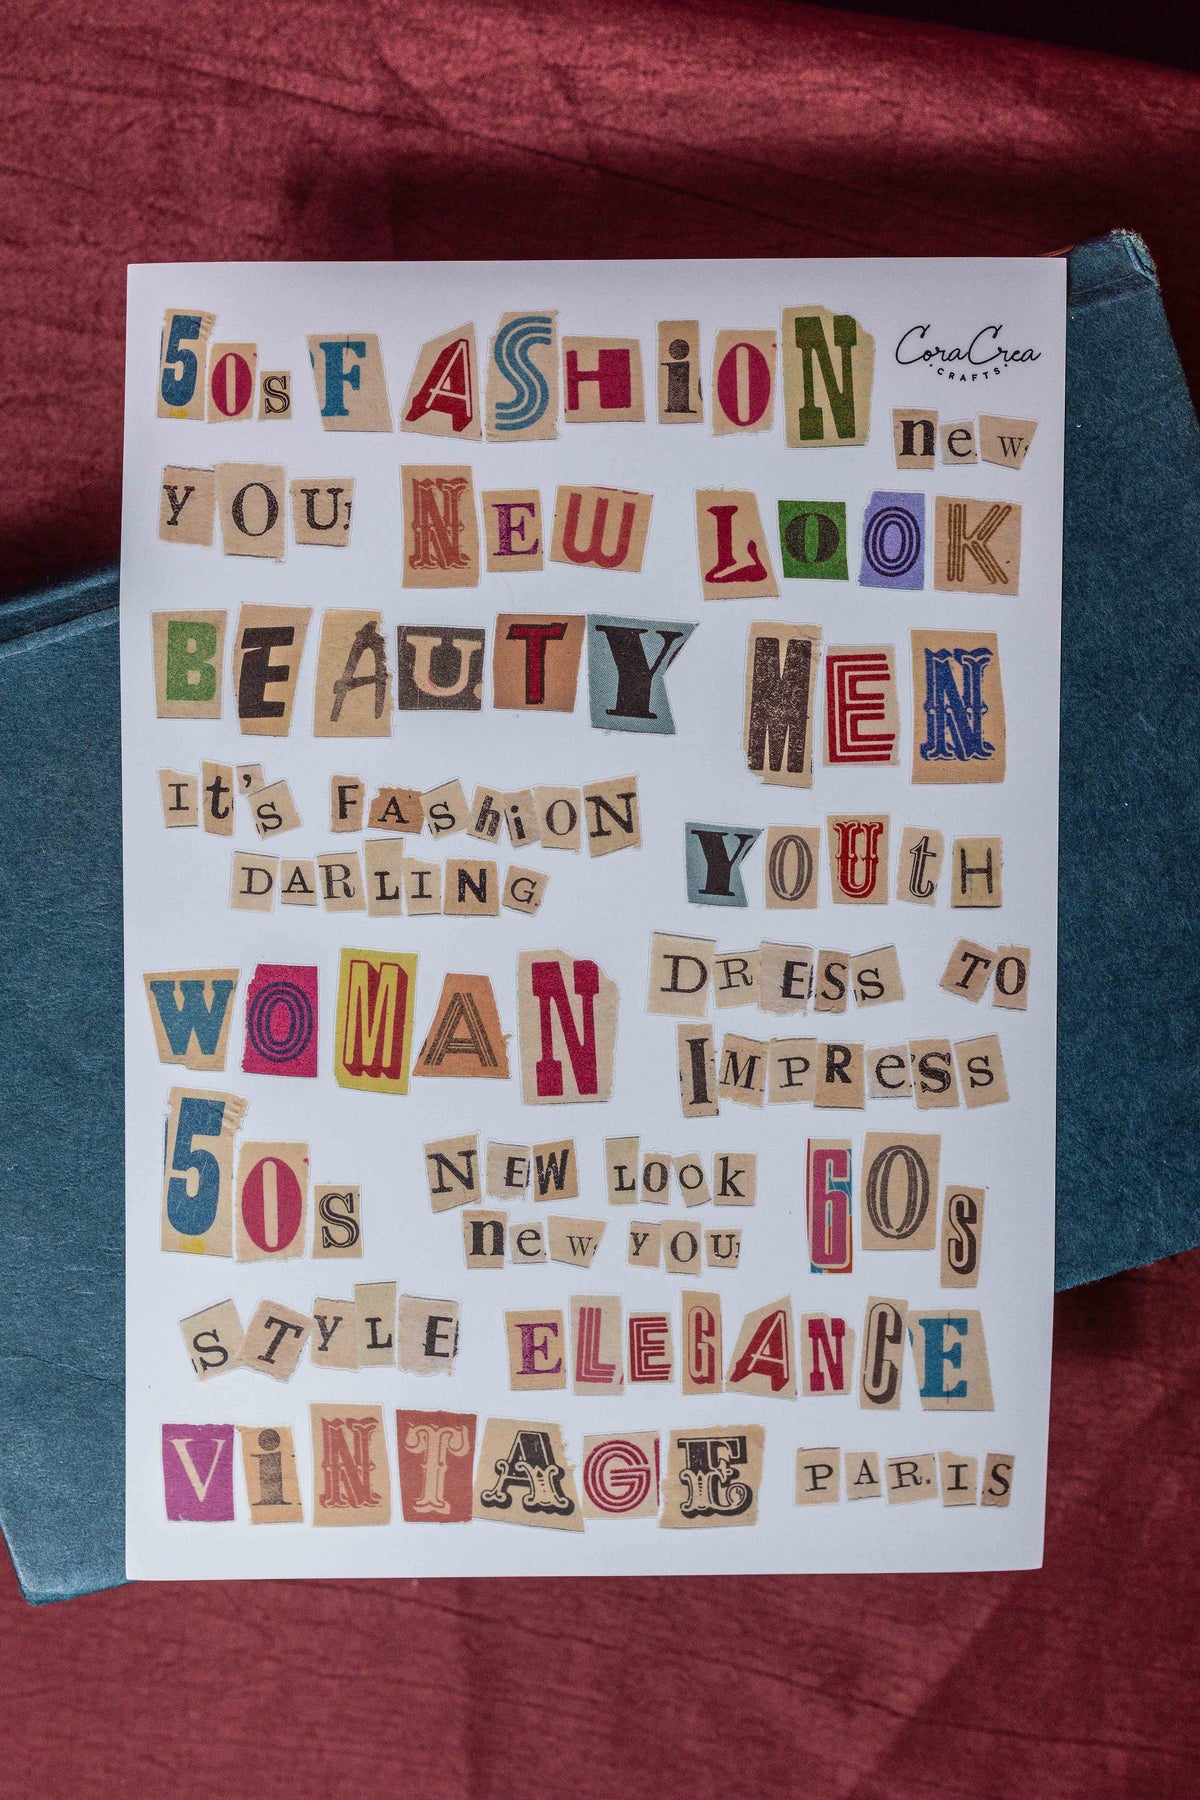 50s FASHiON
CoraCrea
CRAFTS
new
YOU NEW LOOK
BEAUTY MEN
It's FAShiON
DARLING
YOUtH
WOMAN
DRESS TO
IMPReSS
50s
NEW LOOk
new yOU
60s
STYLE ELEGANCE
ViNTAGE PARIS